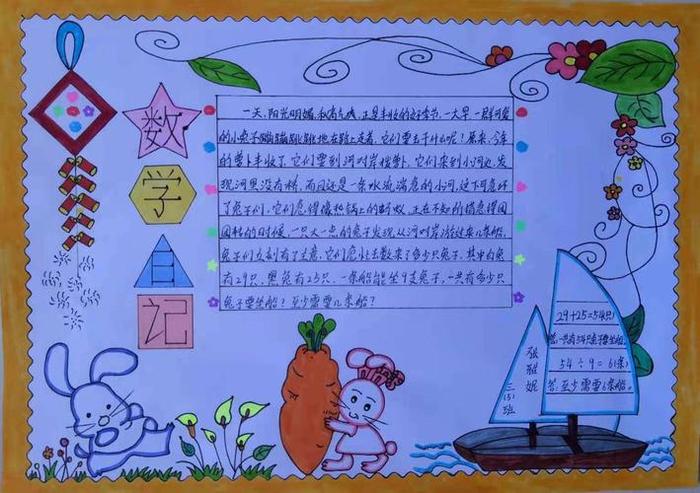 数
学
日
记
一天,阳光明媚,秋高气爽,正是丰收的好季节,一大早,一群可爱
的小兔子蹦蹦跳跳地在路上走着,它们要去干什么呢?原来,今年
的萝卜丰收了,它们要到河对岸拔萝卜,它们来到小河边,发
现河里没有桥,而且还是一条水流湍急的小河,这下可急坏
了兔子们,它们急得像热锅上的蚂蚁,正在不知所措急得团
团转的时候,一只大一点的兔子发现从河对岸游过来几条船,
兔子们立刻有了主意,它们急忙去数来了多少只兔子,其中白兔
有29只,黑兔有25只,一条船能坐9支兔子,一共有多少只
兔子要坐船?至少需要几条船?
29+25=54(只)
答:一共有54只兔子要坐船。
54÷9=6(条)
答:至少需要6条船。
张雅妮
三(5)班